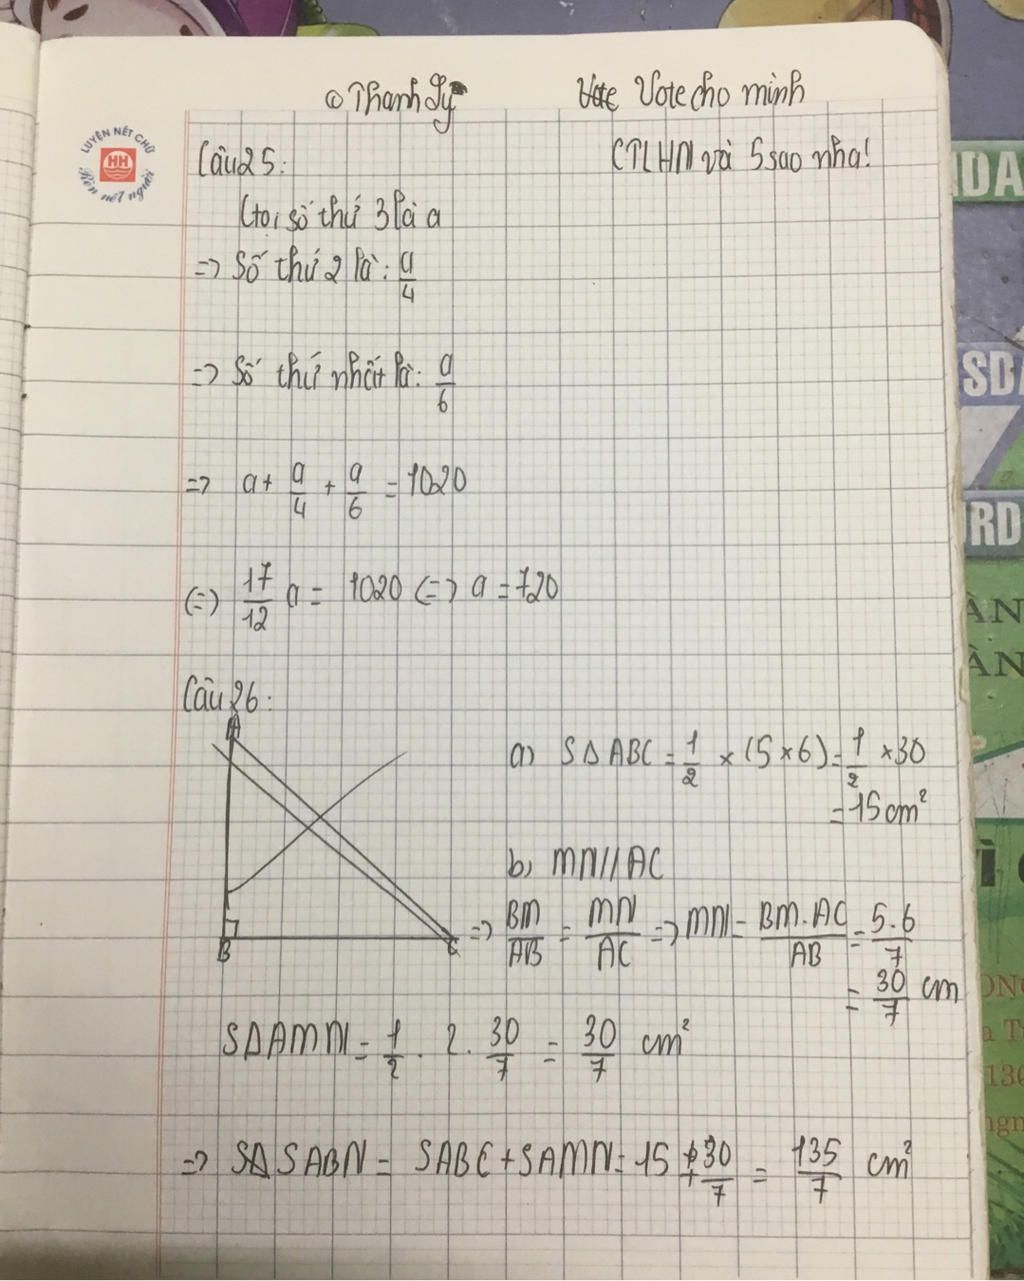 @ Thanh Ly
Vote Vote cho mình
CTLHN và 5 sao nha!
LUYỆN NÉT CHỮ
HH
Rèn nết người
Câu 25:
Gọi số thứ 3 là a
=> Số thứ 2 là: a/4
=> Số thứ nhất là: a/6
=> a + a/4 + a/6 = 1020
(=) 17/12 a = 1020 (=) a = 720
Câu 26:
A
B
C
a) SΔABC = 1/2 × (5 × 6) = 1/2 × 30
= 15 cm²
b) MN // AC
=> BM/AB = MN/AC => MN = BM.AC/AB = 5.6/7
= 30/7 cm
SΔAMN = 1/2 . 2 . 30/7 = 30/7 cm²
=> SΔSABN = SABC + SAMN = 15 + 30/7 = 135/7 cm²
DA
SD
RD
ÀN
ÀN